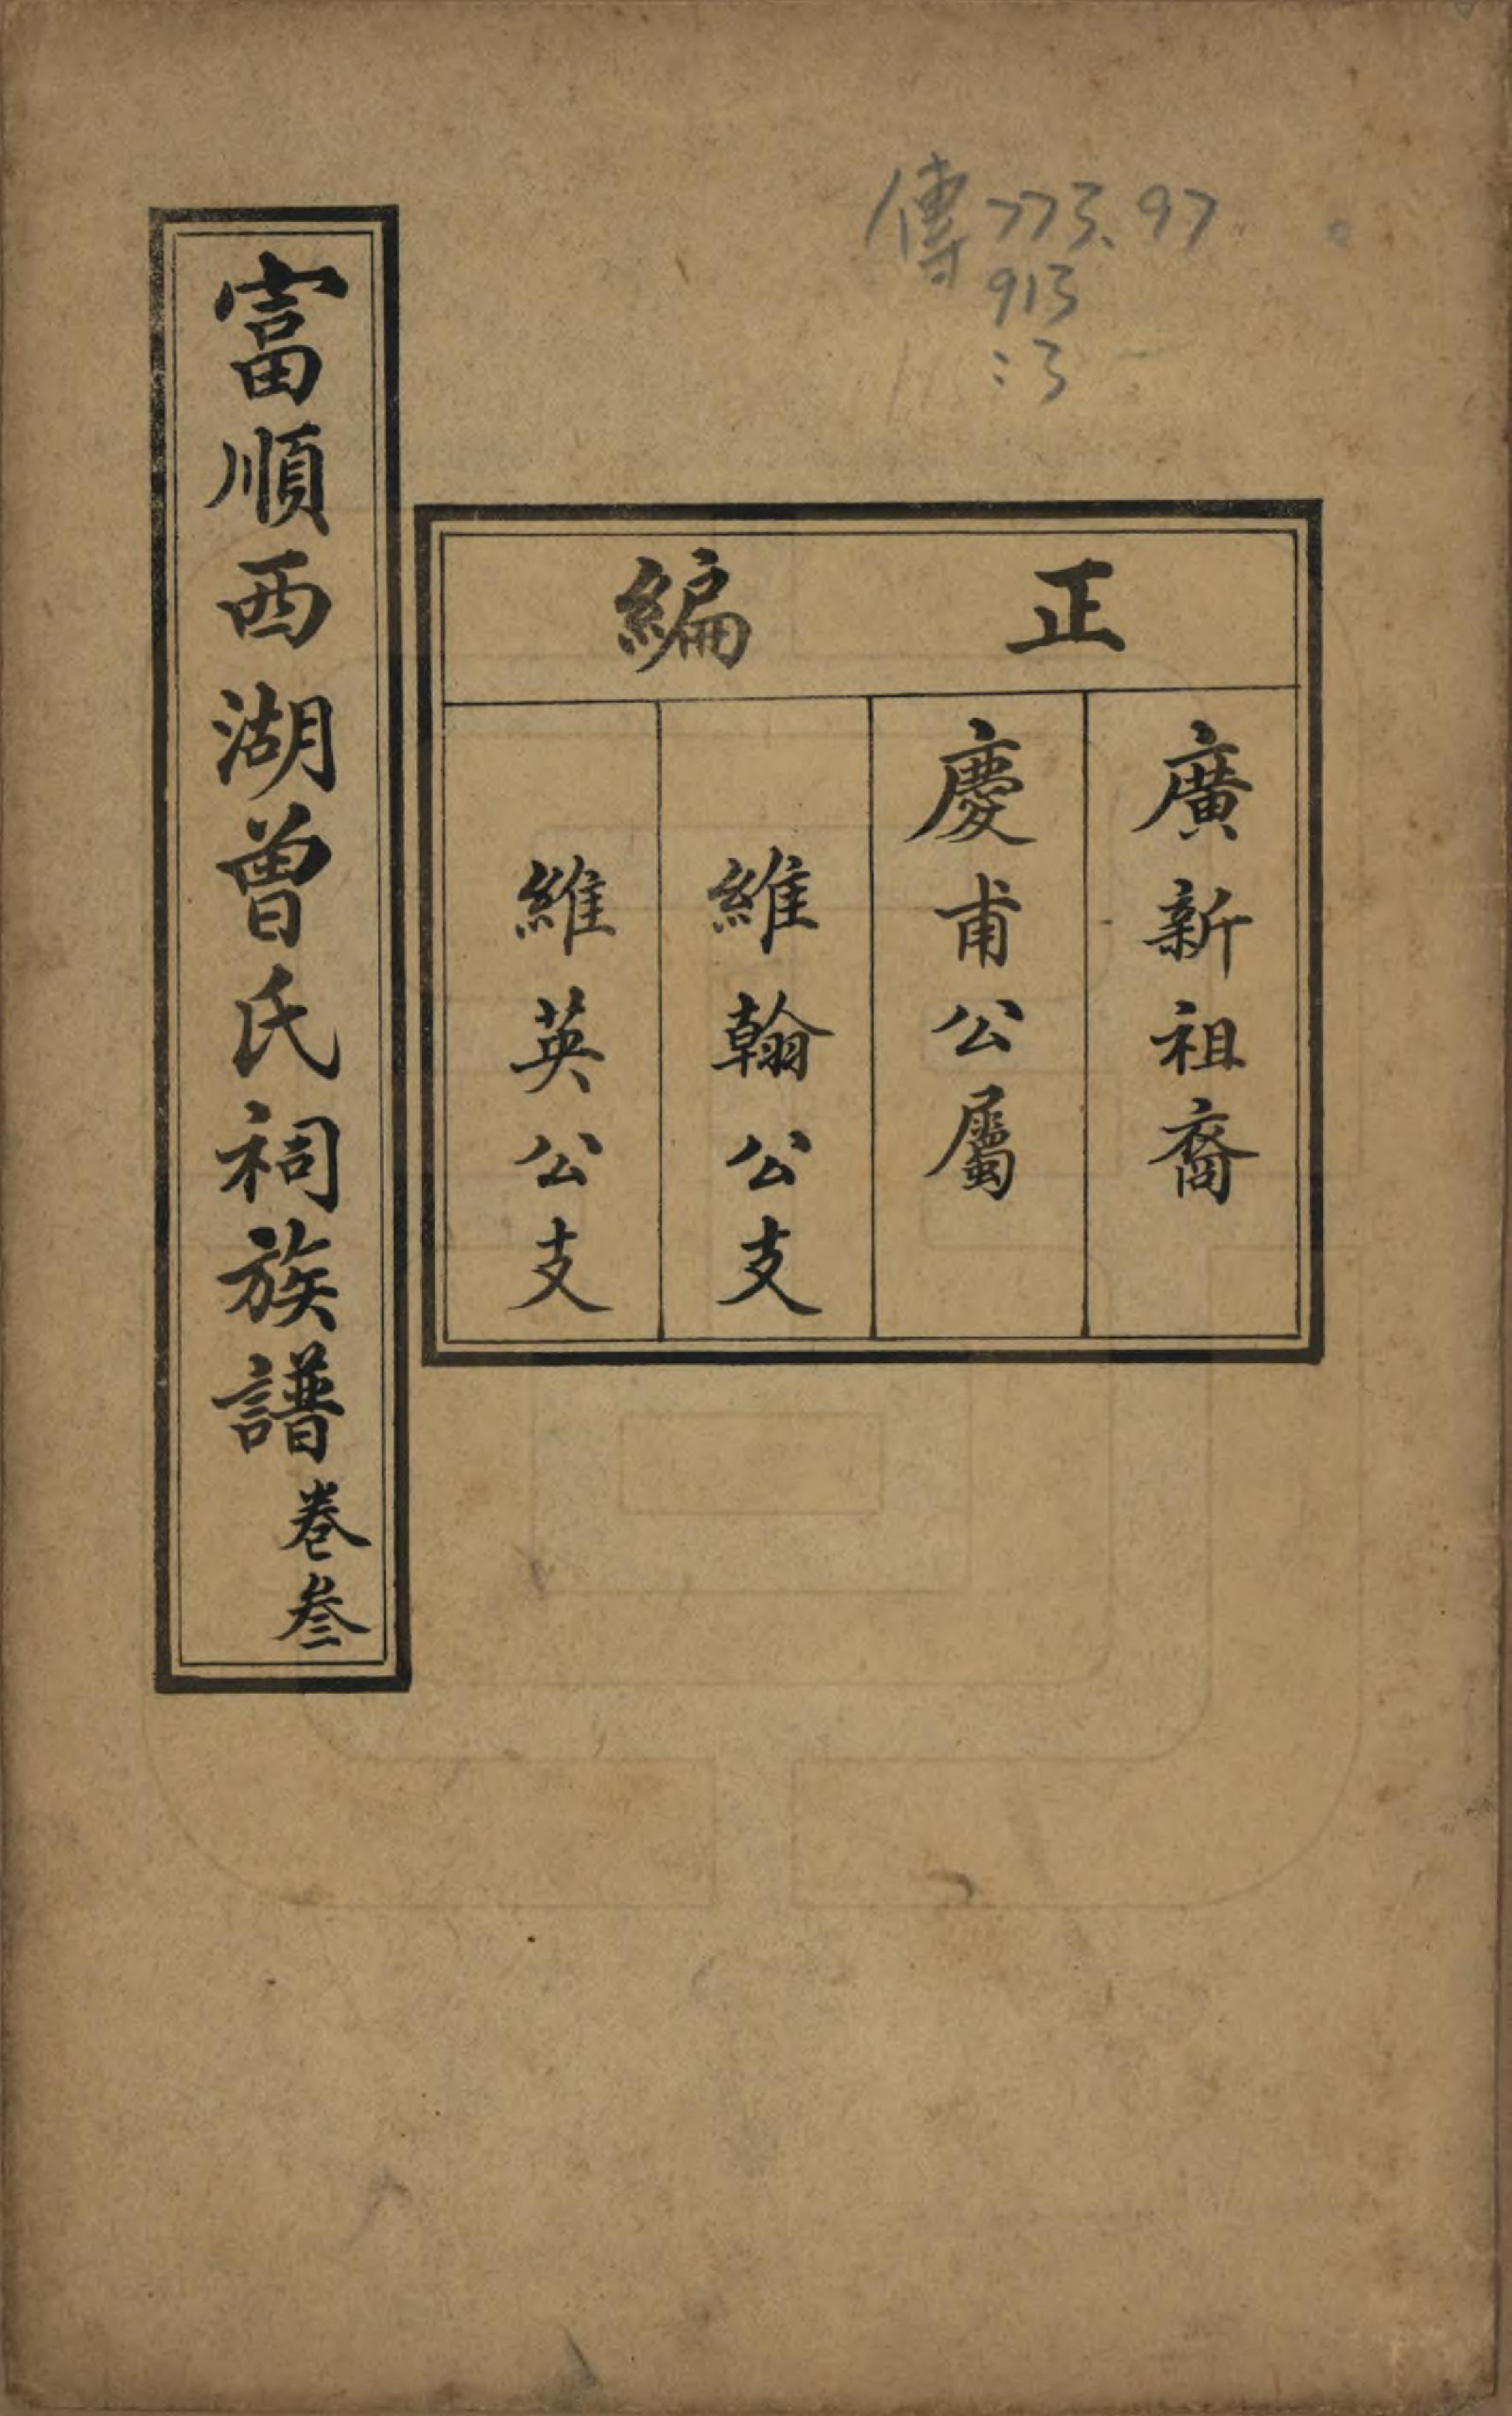 傳773.97
913
:3
正編
廣新祖裔
慶甫公屬
維翰公支
維英公支
富順西湖曾氏祠族譜卷叄